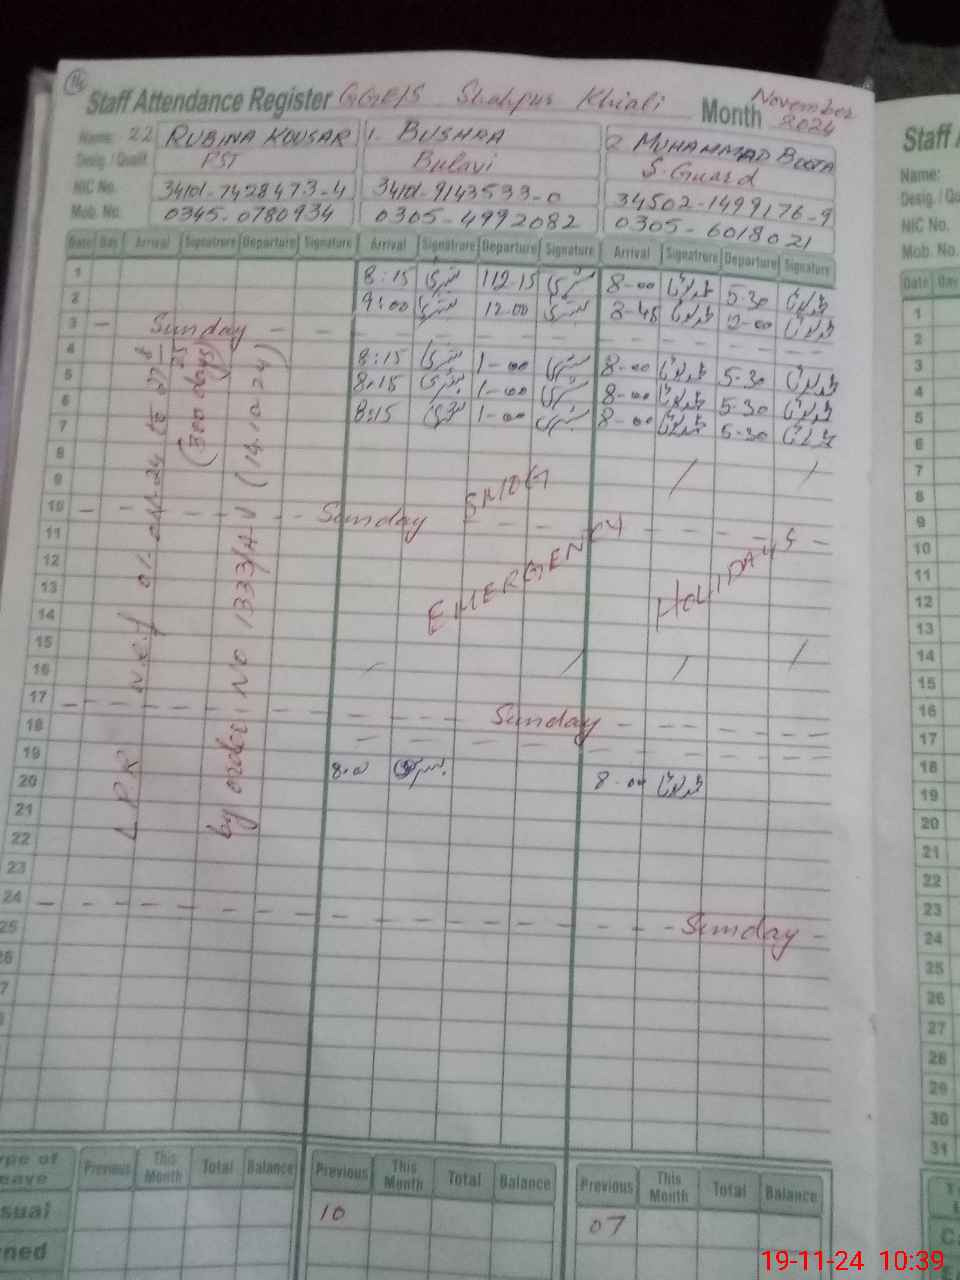 16
Staff Attendance Register GGE/S Shahpur Khiali Month November 2024
Name: 22 RUBINA KOUSAR 1. BUSHRA 2 MUHAMMAD BOOTA
Desig. / Qualif. PST Bulavi S. Guard
NIC No. 34101-7428473-4 34101-9143533-0 34502-1499176-9
Mob. No. 0345-0780934 0305-4992082 0305-6018021
Date Day Arrival Signatrure Departure Signature Arrival Signatrure Departure Signature Arrival Signatrure Departure Signature
1 8:15 بشری 112-15 بشری 8-00 5-30
2 9:00 بشری 12.00 بشری 12-00
3 - Sunday - - - - - - - - -
4 8:15 بشری 1-00 بشری 8-00 5-30
5 8:15 بشری 1-00 بشری 8-00 5-30
6 8:15 بشری 1-00 بشری 8-00 5-30
7
8
9
10 - - Sunday - - -
11
12
13
14
15
16
17 - - - Sunday - - -
18
19
20 8.0 بشری 8-00
21
22
23
24 - - - Sunday -
25
L.P.R w.e.f 01-
(300 days)
by order No 1333/A-V (14.10.24)
SMOG
EMERGENCY
HOLIDAYS
Previous This Month Total Balance Previous This Month Total Balance Previous This Month Total Balance
10 07
Staff
Name:
Desig. / Qu
NIC No.
Mob. No.
Date Day
1
2
3
4
5
6
7
8
9
10
11
12
13
14
15
16
17
18
19
20
21
22
23
24
25
26
27
28
29
30
31
19-11-24 10:39